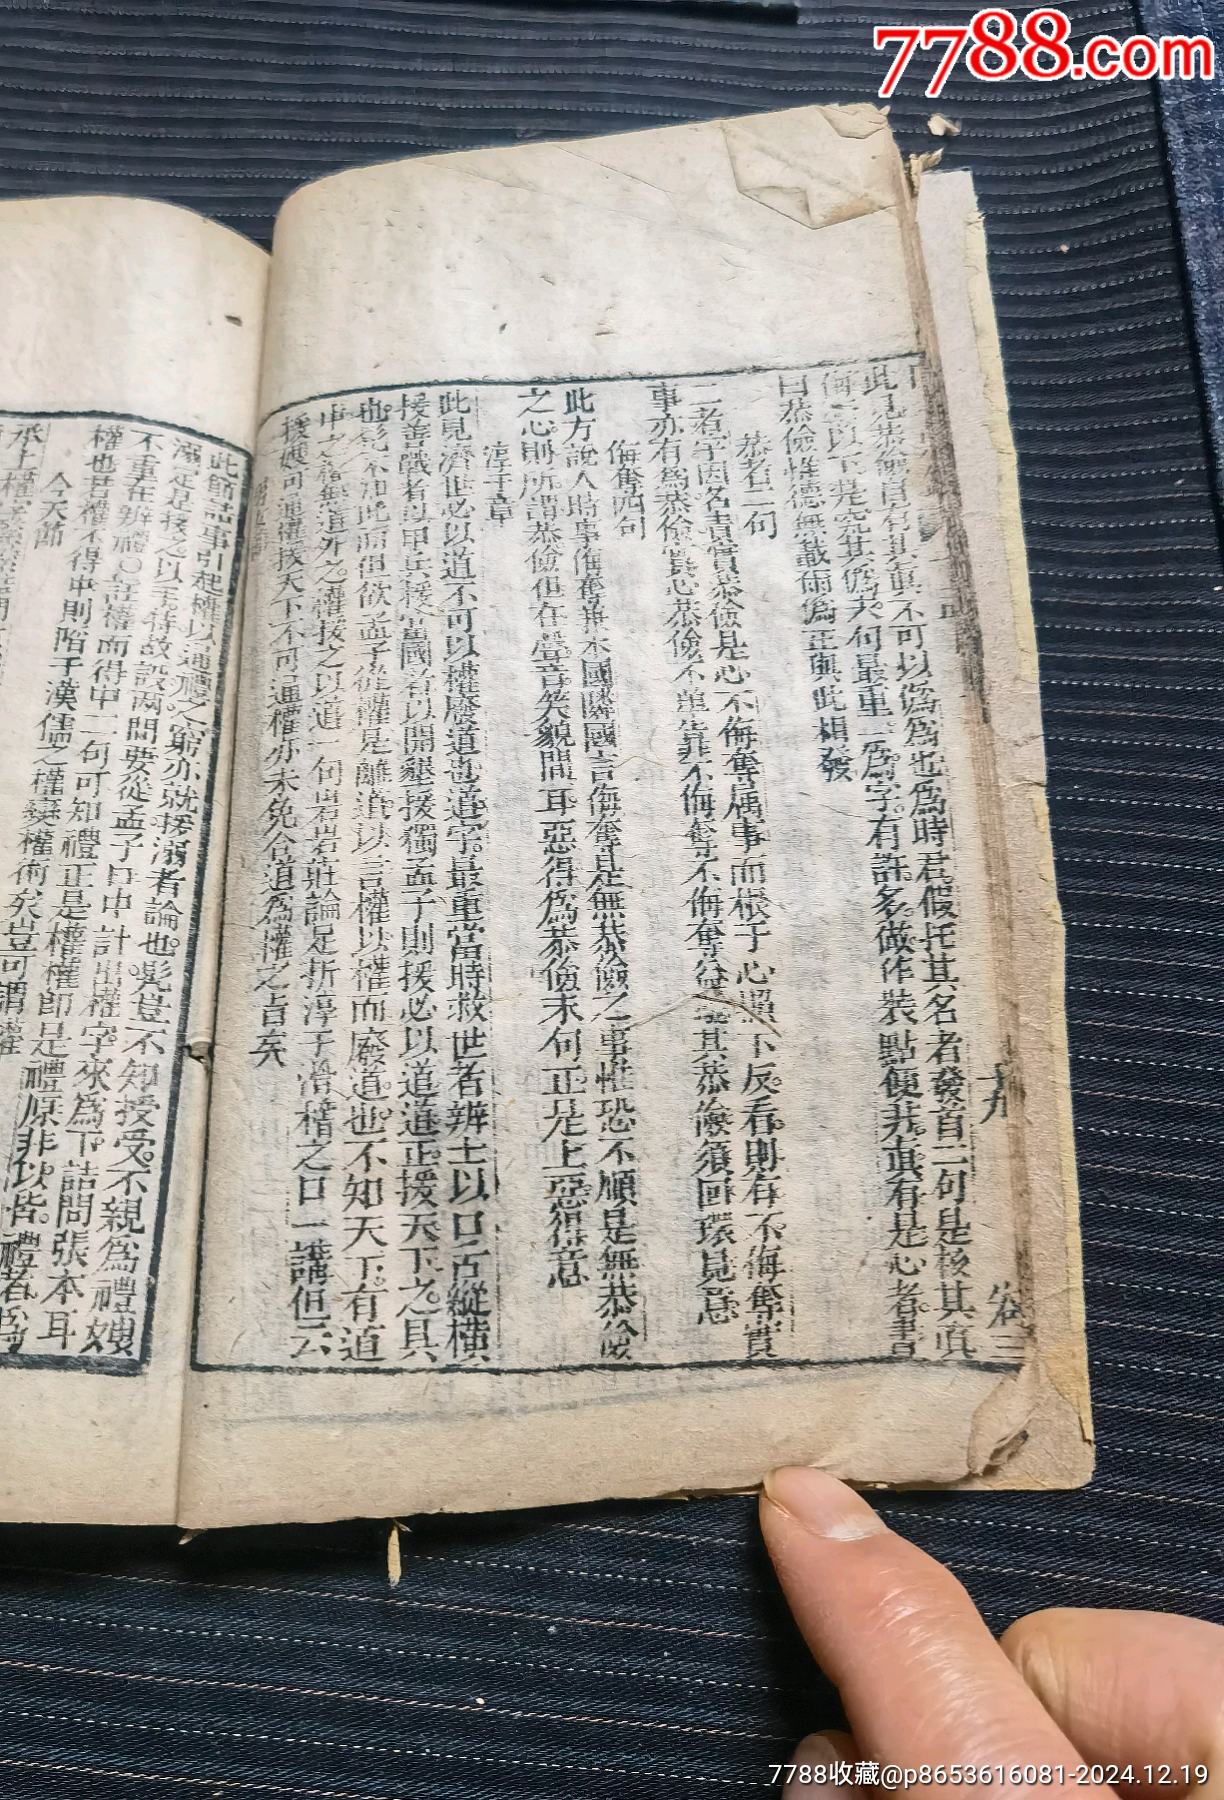 7788.com
此見恭儉自有其真不可以偽為也為時君假托其名者發首二句是核其真
侮奪以下是究其偽夫何最重一為字有許多做作裝點便非真有是心者書
曰恭儉惟德無載爾偽正與此相發
恭者二句
二者字因名責實恭儉是心不侮奪屬事而根于心照下反看則存不侮奪實
事亦有為恭儉實心恭儉不單靠不侮奪不侮奪益見其恭儉須回環見意
侮奪四句
此方說人時事侮奪兼本國隣國言侮奪是無恭儉之事惟恐不順是無恭儉
之心則所謂恭儉但在聲音笑貌間耳惡得為恭儉末句正是上惡得意
淳于章
此見濟世必以道不可以權廢道也道字最重當時救世者辨士以口舌縱橫
援善戰者以甲兵援富國者以開墾援獨孟子則援必以道道正援天下之具
也髡不知此而但欲孟子從權是離道以言權以權而廢道也不知天下有道
中之權無道外之權援之以道一句當若斯論足折淳于滑稽之口一講但云
援嫂可通權援天下不可通權亦未免合道為權之旨矣
十九
卷三
此節詰事引起權以通禮之窮亦就援溺者論也髡豈不知授受不親為禮嫂
溺定是援之以手特故設兩問要從孟子口中討出權字來為下詰問張本耳
不重在辨禮○註權而得中二句可知禮正是權權即是禮原非以背禮者為
權也若權不得中則陷于漢儒之權變權術矣豈可謂權
今天節
7788收藏@p8653616081-2024.12.19